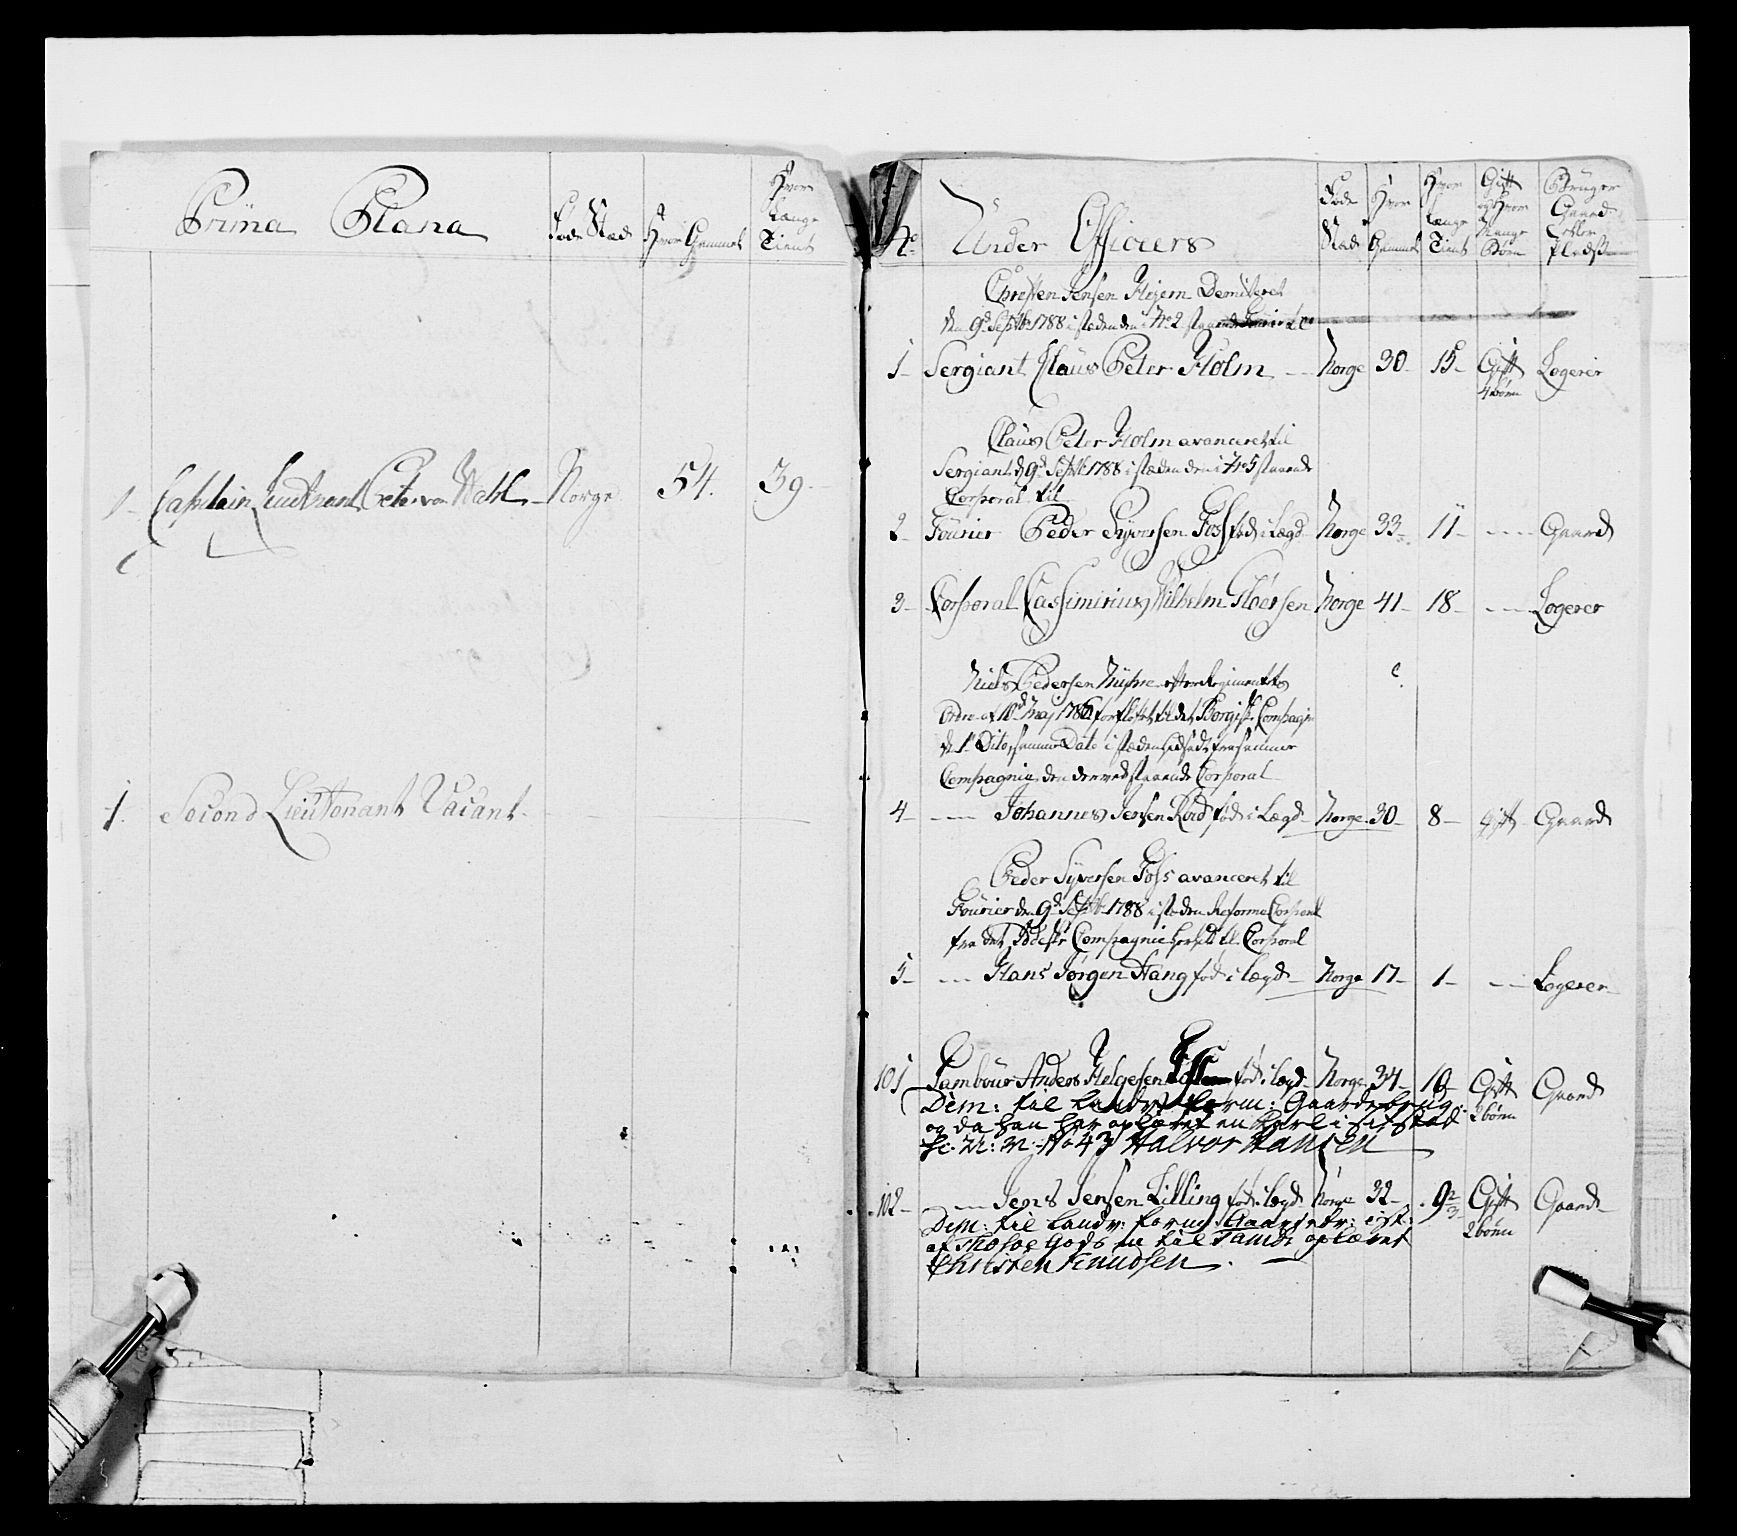 Prima Plana
Føde Stæd
Hvor Gammel
Hvor Længe Tient
1 Captain Lieutnant Peter von Wahl Norge 54. 39.
1. Second Lieutenant Vacant.
No
Under Officiers
Føde Stæd
Hvor Gammel
Hvor Længe Tient
Gift og Hvor Mange Børn
Bruger Gaard Eller Pladss
Christen Jensen Hejem Demiteret
den 9de Septbr 1788 i stæden den i No 2 staaende
1 Sergiant Claus Peter Holm Norge 30 15 Gift 4 børn Logerer
Claus Peter Holm avanceret til
Sergiant d 9de Septbr 1788 i stæden den i No 5 staaende
Corporal til
2 Fourier Peder Syversen Foss fød i Lægd Norge 33 11 Gaard
3 Corporal Cassimirius Wilhelm Fløersen Norge 41 18 Logerer
Niels Pedersen efter Regimentets
Ordre af May forfløttet til det Compagnie
Dito samme Dato i stæden fra samme
Compagnie den derved staaende Corporal
4 Johannes Jensen Rød fød i Lægd Norge 30 8 gift Gaard
Peder Syversen Foss avanceret til
Fourier den 9de Septbr 1788 i stæden Reforme Corporal
fra det Compagnie til Corporal
5 Hans Jørgen Stang fød i Lægd Norge 17 1 Logerer
101 Tambour Anders Helgesen fød i Lægd Norge 34 10 Gift 2 børn Gaard
Dem: til Landv: form: Gaardebrug
og da han har oplæret en Karl i sit sted
No 43 Halvor Hansen
102 Jens Jensen Killing fød i Lægd Norge 32 9 2/3 Gift 2 børn Gaard
Dem: til Landv: form: Gaardebr: i st:
af Gods en til Tamb: oplæret
Christen Knudsen